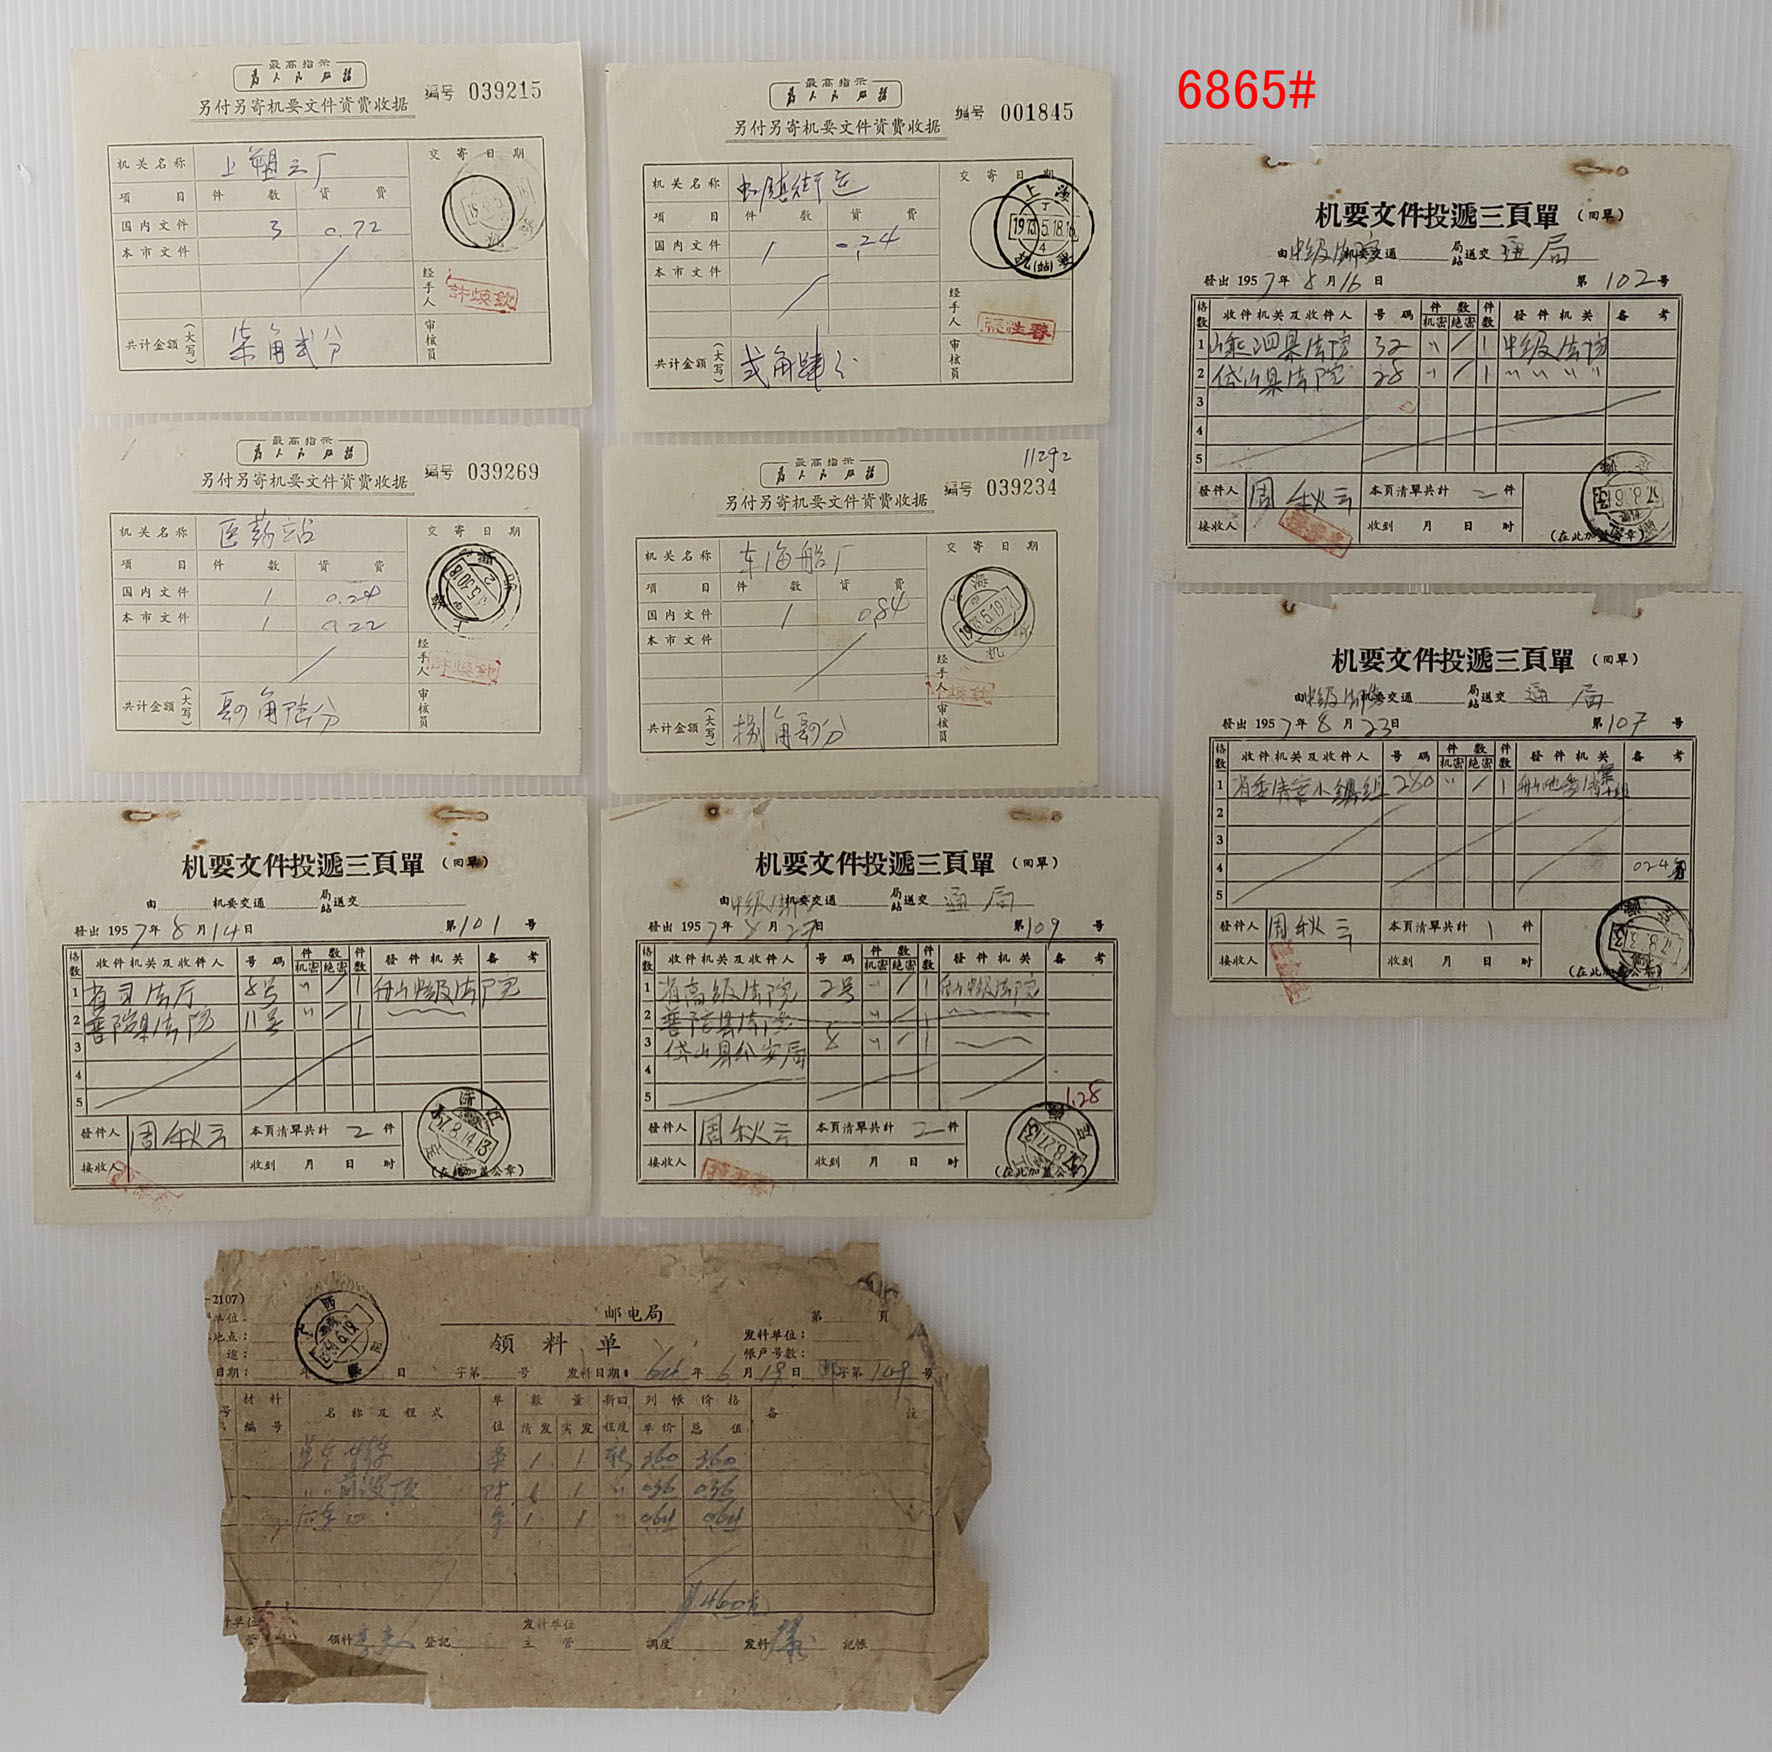 6865#
最高指示
为人民服务
另付另寄机要文件资费收据
编号 039215
机关名称 上塑三厂
交寄日期
項目 件数 資費
国内文件 3 0.72
本市文件
经手人
共计金额（大写） 柒角贰分
审核员
最高指示
为人民服务
另付另寄机要文件资费收据
编号 001845
机关名称
交寄日期
項目 件数 資費
国内文件 1 0.24
本市文件
上海
1973.5.18.16
机(站)
经手人
共计金额（大写） 弍角肆分
审核员
最高指示
为人民服务
另付另寄机要文件资费收据
编号 039269
机关名称 医药站
交寄日期
項目 件数 資費
国内文件 1 0.24
本市文件 1 0.22
经手人
共计金额（大写） 肆角陆分
审核员
11292
最高指示
为人民服务
另付另寄机要文件资费收据
编号 039234
机关名称 东海船厂
交寄日期
項目 件数 資費
国内文件 1 0.84
本市文件
经手人
共计金额（大写） 捌角肆分
审核员
机要文件投遞三頁單（囘單）
由中级法院机要交通 局站送交 通局
發出 1957年8月16日 第102号
格数 收件机关及收件人 号碼 件数 机密 絕密 件数 發件机关 备考
1 嵊泗県法院 32 〃 / 1 中级法院
2 岱山県法院 28 〃 / 1 〃 〃 〃 〃
3
4
5
發件人 周秋云 本頁清單共計 二 件
接收人 收到 月 日 时 (在此加盖公章)
机要文件投遞三頁單（囘單）
由中级法院机要交通 局站送交 通局
發出 1957年8月23日 第107号
格数 收件机关及收件人 号碼 件数 机密 絕密 件数 發件机关 备考
1 280 〃 / 1
2
3
4
5
發件人 周秋云 本頁清單共計 1 件
接收人 收到 月 日 时 (在此加盖公章)
机要文件投遞三頁單（囘單）
由 机要交通 局站送交
發出 1957年8月14日 第101号
格数 收件机关及收件人 号碼 件数 机密 絕密 件数 發件机关 备考
1 省司法厅 8号 〃 / 1 舟山中级法院
2 普陀県法院 11号 〃 / 1
3
4
5
發件人 周秋云 本頁清單共計 2 件
接收人 收到 月 日 时 (在此加盖公章)
机要文件投遞三頁單（囘單）
由中级法院机要交通 局站送交 通局
發出 1957年8月27日 第109号
格数 收件机关及收件人 号碼 件数 机密 絕密 件数 發件机关 备考
1 省高级法院 2号 〃 / 1 舟山中级法院
2 普陀县法院 〃 / 1
3 岱山县公安局 8 〃 / 1
4
5
1.28
發件人 周秋云 本頁清單共計 二 件
接收人 收到 月 日 时 (在此加盖公章)
-2107)
邮电局
第 頁
单位：
地点：
途：
領料单
发料单位：
帐户号数：
日期： 年 日 字第 号 发料日期：64年6月19日 邮字第109号
材料编号 名称及程式 单位 数量 请发 实发 新旧程度 列帐价格 单价 总值 备註
1 1 新 3.60 3.60
1 1 〃 0.36 0.36
1 1 〃 0.64 0.64
4.60元
领料 登記 发料单位主管 调度 发料 記帐